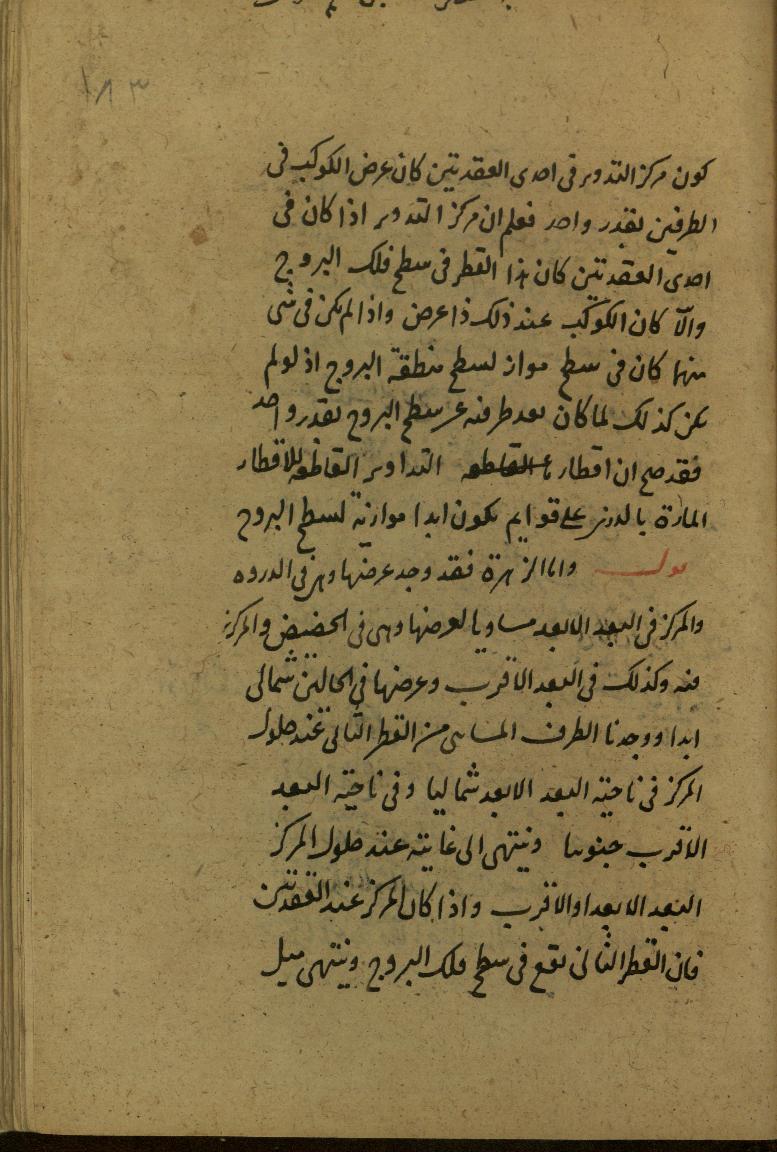 ١٨٣
كون مركز التدوير فى احدى العقدتين كان عرض الكوكب فى
الطرفين بقدر واحد فعلم ان مركز التدوير اذا كان فى
احدى العقدتين كان هذا القطر فى سطح فلك البروج
والّا كان الكوكب عند ذلك ذا عرض واذا لم يكن فى شى
منهما كان فى سطح مواز لسطح منطقة البروج اذ لو لم
يكن كذلك لما كان بعد طرفيه عن سطح البروج بقدر واحد
فقد صح ان اقطار التداوير القاطعه للاقطار
المارة بالذرى على قوايم يكون ابدا موازية لسطح البروج
واما الزهرة فقد وجد عرضها وهى فى الذروه
والمركز فى البعد الابعد مساويا لعرضها وهى فى الحضيض والمركز
فيه وكذلك فى البعد الاقرب وعرضها فى الحالين شمالى
ابدا ووجدنا الطرف المسايى من القطر الثانى عند حلول
المركز فى ناحية البعد الابعد شماليا وفى ناحية البعد
الاقرب جنوبيا وينتهى الى غايته عند حلول المركز
البعد الابعد او الاقرب واذا كان المركز عند العقدتين
فان القطر الثانى يقع فى سطح فلك البروج وينتهى ميل